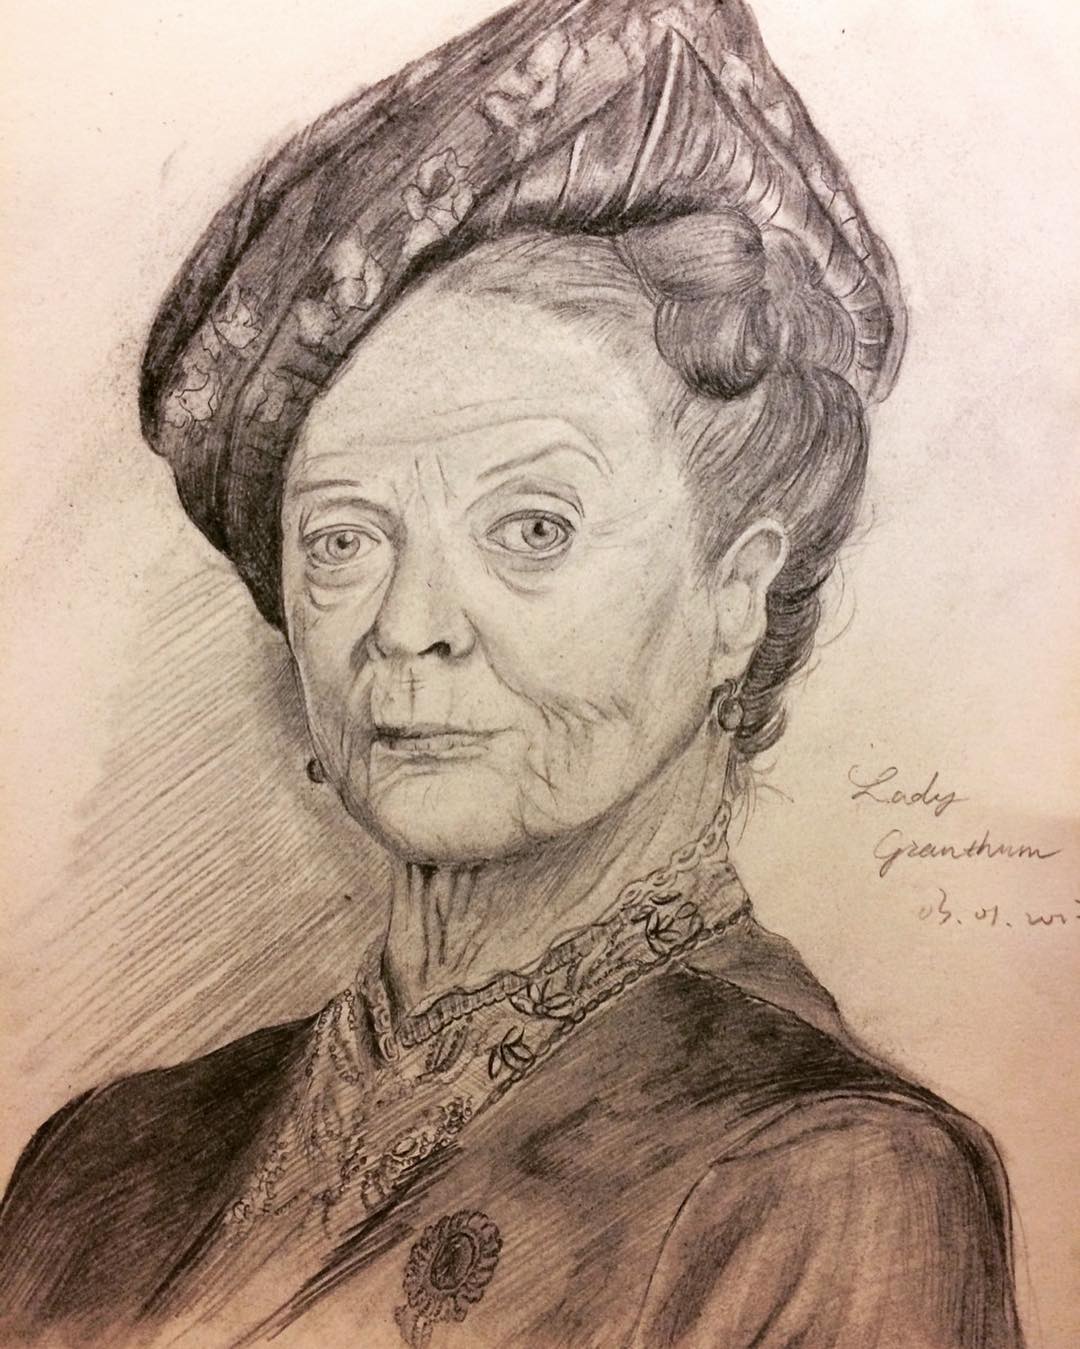 Lady
Granthum
03.01.201